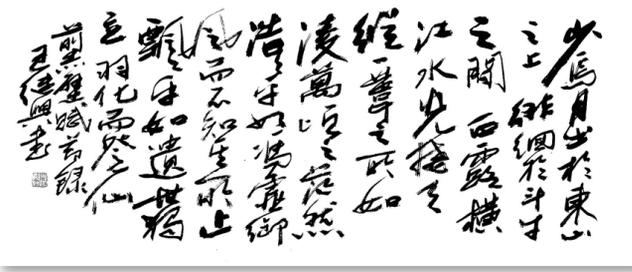 少焉月出於東山
之上徘徊於斗牛
之間白露橫
江水光接天
縱一葦之所如
凌萬頃之茫然
浩浩乎如馮虛御
風而不知其所止
飄飄乎如遺世獨
立羽化而登仙
前赤壁賦節錄
王继興書